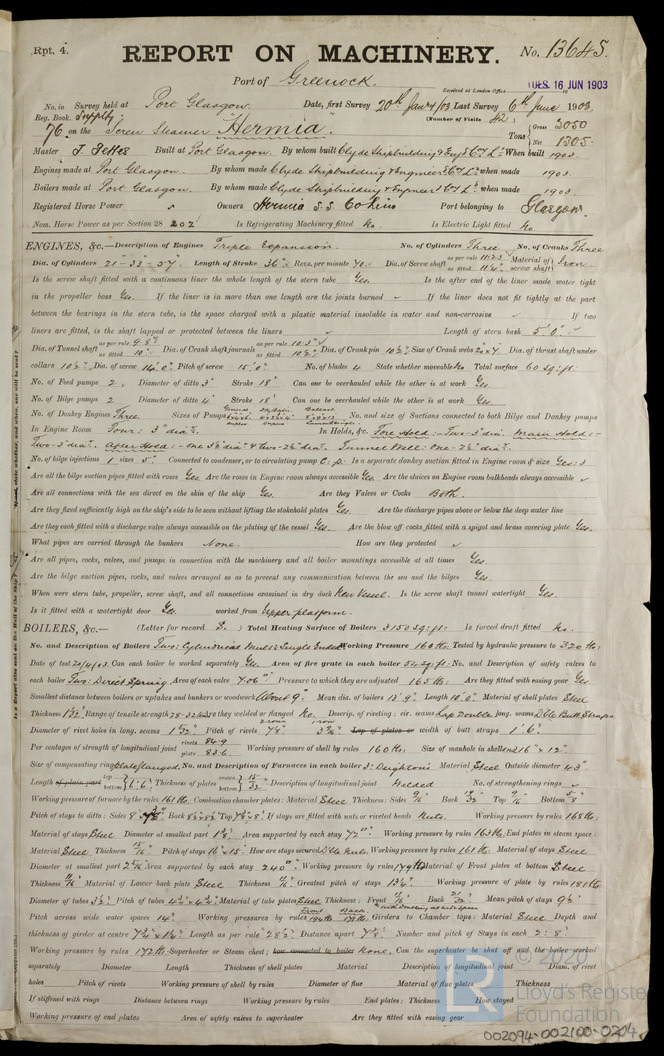 Rpt. 4.
REPORT ON MACHINERY.
No. 13645.
Port of Greenock.
Received at London Office
TUES. 16 JUN 1903
No. in Survey held at Port Glasgow. Date, first Survey 20th Jany/03 Last Survey 6th June 1903.
Reg. Book. Supply (Number of Visits 42)
76 on the Screw Steamer "Hermia". Tons Gross 3050 Net 1305
Master J. Built at Port Glasgow. By whom built Clyde Shipbuilding & Eng When built 1903.
Engines made at Port Glasgow. By whom made Clyde Shipbuilding & Engineer when made 1903.
Boilers made at Port Glasgow. By whom made Clyde Shipbuilding & Engineer when made 1903.
Registered Horse Power Owners Hermia S.S. Port belonging to Glasgow.
Nom. Horse Power as per Section 28 202 Is Refrigerating Machinery fitted No. Is Electric Light fitted No.
ENGINES, &c.—Description of Engines Triple Expansion. No. of Cylinders Three No. of Cranks Three
Dia. of Cylinders 21"-33"-57". Length of Stroke 36" Revs. per minute 70. Dia. of Screw shaft as per rule as fitted Material of screw shaft Iron
Is the screw shaft fitted with a continuous liner the whole length of the stern tube Yes. Is the after end of the liner made water tight
in the propeller boss Yes. If the liner is in more than one length are the joints burned If the liner does not fit tightly at the part
between the bearings in the stern tube, is the space charged with a plastic material insoluble in water and non-corrosive If two
liners are fitted, is the shaft lapped or protected between the liners Length of stern bush 5' 0"
Dia. of Tunnel shaft as per rule as fitted 10" Dia. of Crank shaft journals as per rule as fitted 10½" Dia. of Crank pin 10½" Size of Crank webs 20"x7" Dia. of thrust shaft under
collars 10½" Dia. of screw 14' 0" Pitch of screw 15' 0" No. of blades 4 State whether moveable Yes Total surface 60 sq: ft:
No. of Feed pumps 2 Diameter of ditto 3" Stroke 18" Can one be overhauled while the other is at work Yes.
No. of Bilge pumps 2 Diameter of ditto 4" Stroke 18" Can one be overhauled while the other is at work Yes.
No. of Donkey Engines Three Sizes of Pumps No. and size of Suctions connected to both Bilge and Donkey pumps
In Engine Room Four: 3" dia: In Holds, &c. Fore Hold:- Two-3" dia. Main Hold:-
Two-3" dia. After Hold:- One 3½ dia. & two-2½" dia. Tunnel Well: One-2½" dia.
No. of bilge injections 1 sizes 5" Connected to condenser, or to circulating pump C.p. Is a separate donkey suction fitted in Engine room & size Yes: 3
Are all the bilge suction pipes fitted with roses Yes Are the roses in Engine room always accessible Yes. Are the sluices on Engine room bulkheads always accessible
Are all connections with the sea direct on the skin of the ship Yes. Are they Valves or Cocks Both.
Are they fixed sufficiently high on the ship's side to be seen without lifting the stokehold plates Yes Are the discharge pipes above or below the deep water line
Are they each fitted with a discharge valve always accessible on the plating of the vessel Yes. Are the blow off cocks fitted with a spigot and brass covering plate Yes.
What pipes are carried through the bunkers None. How are they protected
Are all pipes, cocks, valves, and pumps in connection with the machinery and all boiler mountings accessible at all times Yes.
Are the bilge suction pipes, cocks, and valves arranged so as to prevent any communication between the sea and the bilges Yes.
When were stern tube, propeller, screw shaft, and all connections examined in dry dock New Vessel. Is the screw shaft tunnel watertight Yes.
Is it fitted with a watertight door Yes. worked from Upper platform.
BOILERS, &c.— (Letter for record S.) Total Heating Surface of Boilers 3150 sq: ft: Is forced draft fitted No.
No. and Description of Boilers Two: Cylindrical Mult: Single Ended Working Pressure 160 lbs. Tested by hydraulic pressure to 320 lbs:
Date of test 20/4/03. Can each boiler be worked separately Yes. Area of fire grate in each boiler 54 sq: ft: No. and Description of safety valves to
each boiler Two: Direct Spring Area of each valve 7.06" Pressure to which they are adjusted 165 lbs. Are they fitted with easing gear Yes
Smallest distance between boilers or uptakes and bunkers or woodwork About 9" Mean dia. of boilers 13' 9" Length 10' 0" Material of shell plates Steel
Thickness Range of tensile strength 28-32 Are they welded or flanged No. Descrip. of riveting: cir. seams Lap Double long. seams Dble Butt Straps
Diameter of rivet holes in long. seams Pitch of rivets 7⅞" Lap of plates or width of butt straps 1' 6"
Per centages of strength of longitudinal joint rivets 84.9 plate 83.6 Working pressure of shell by rules 160 lbs. Size of manhole in shell 16" x 12"
Size of compensating ring Plate flanged. No. and Description of Furnaces in each boiler 3: Deighton's Material Steel Outside diameter 43"
Length of plain part top bottom 6' 6" Thickness of plates crown bottom 15/32 Description of longitudinal joint Welded No. of strengthening rings
Working pressure of furnace by the rules 161 lbs. Combustion chamber plates: Material Steel Thickness: Sides 9/16 Back Top 9/16 Bottom 5/8
Pitch of stays to ditto: Sides Back Top If stays are fitted with nuts or riveted heads Nuts. Working pressure by rules 168 lbs:
Material of stays Steel Diameter at smallest part Area supported by each stay 72" Working pressure by rules 163 lbs. End plates in steam space:
Material Steel Thickness 15/16 Pitch of stays 16 x 15 How are stays secured Dble Nuts. Working pressure by rules 161 lbs. Material of stays Steel
Diameter at smallest part Area supported by each stay 240" Working pressure by rules 179 lbs Material of Front plates at bottom Steel
Thickness 11/16 Material of Lower back plate Steel Thickness Greatest pitch of stays 13½" Working pressure of plate by rules 181 lbs
Diameter of tubes 3½" Pitch of tubes Material of tube plates Steel Thickness: Front Back Mean pitch of stays 9½"
Pitch across wide water spaces 14" Working pressures by rules Front Back Girders to Chamber tops: Material Steel Depth and
thickness of girder at centre Length as per rule 28½" Distance apart Number and pitch of Stays in each 2: 8"
Working pressure by rules 172 lbs Superheater or Steam chest; how connected to boiler None. Can the superheater be shut off and the boiler worked
separately Diameter Length Thickness of shell plates Material Description of longitudinal joint Diam. of rivet
holes Pitch of rivets Working pressure of shell by rules Diameter of flue Material of flue plates Thickness
If stiffened with rings Distance between rings Working pressure by rules End plates: Thickness How stayed
Working pressure of end plates Area of safety valves to superheater Are they fitted with easing gear
© 2020
LR
Lloyd's Register
Foundation
002094-002100-0204